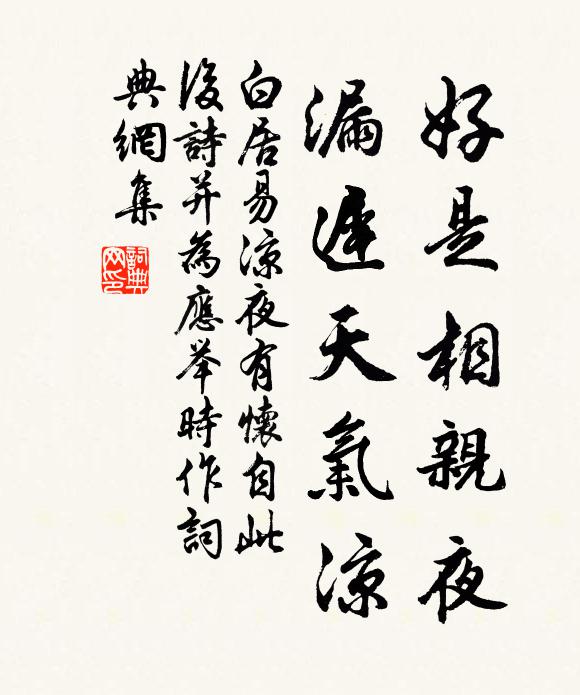 好是相親夜
漏遲天氣涼
白居易涼夜有懷自此
後詩并為應举時作詞
典網集
詞典
网印